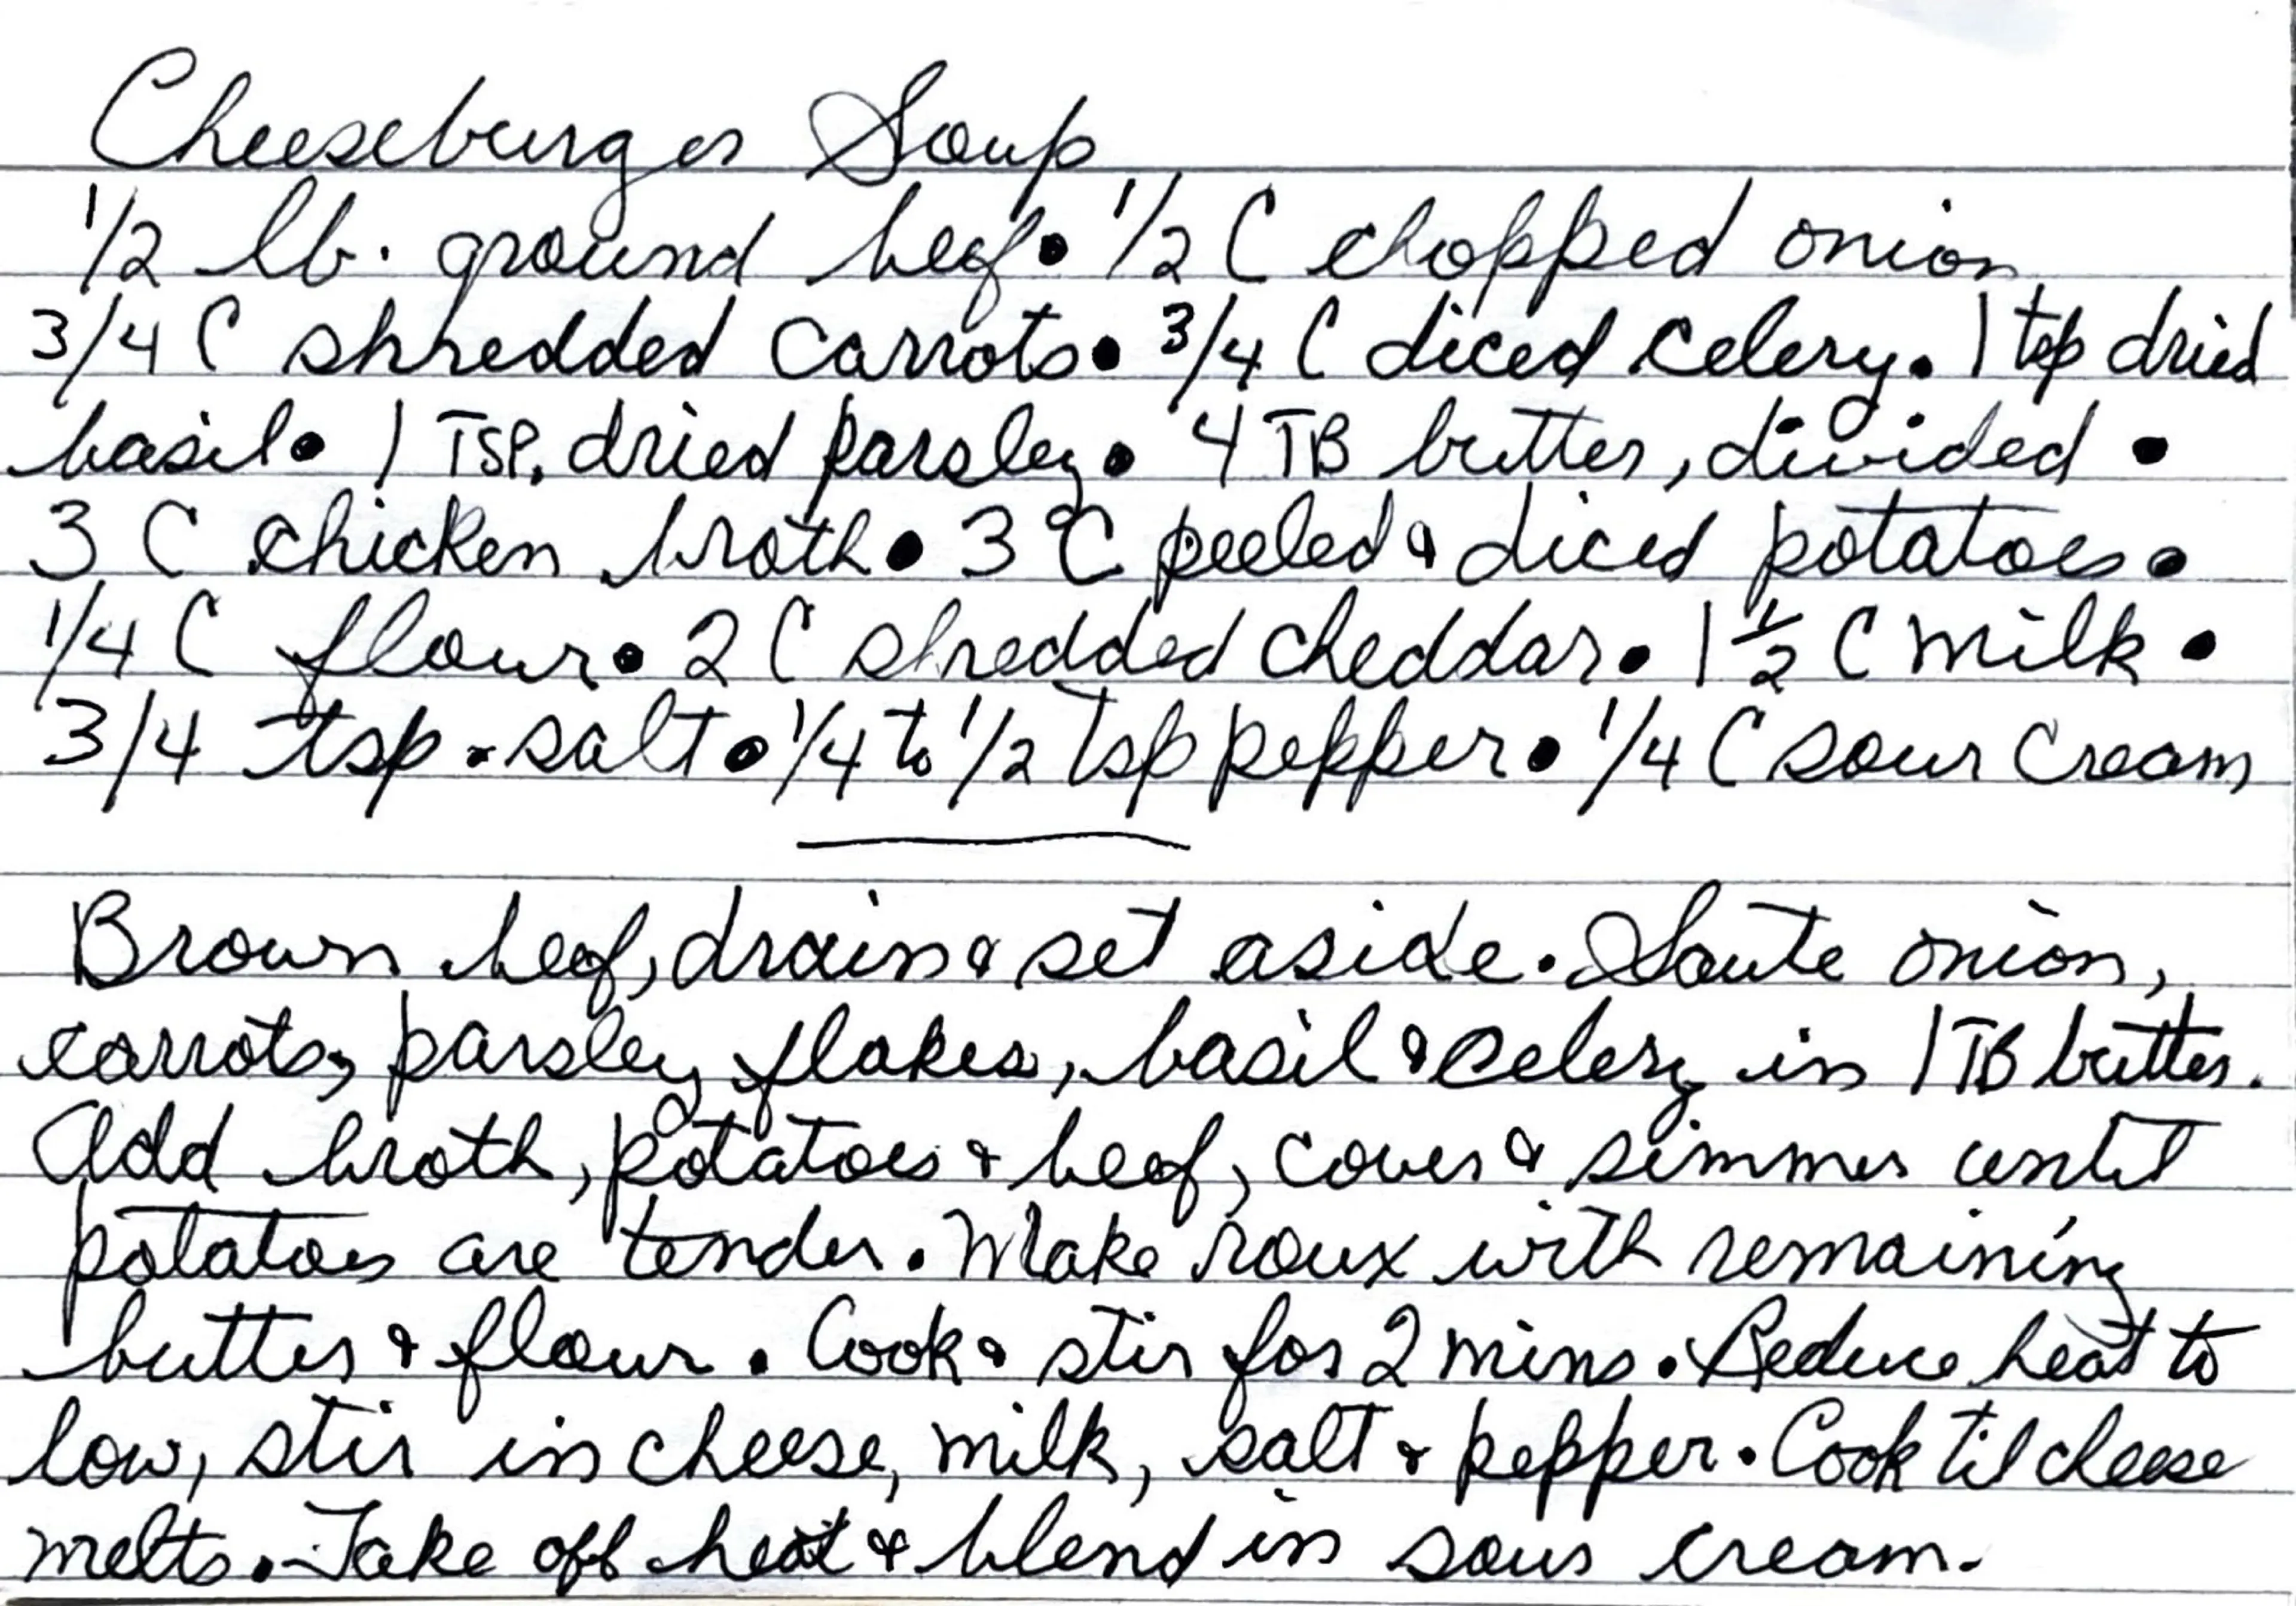 Cheeseburger Soup
1/2 lb. ground beef • 1/2 C chopped onion
3/4 C shredded carrots • 3/4 C diced celery • 1 tsp dried
basil • 1 TSP. dried parsley • 4 TB butter, divided •
3 C chicken broth • 3 C peeled & diced potatoes •
1/4 C flour • 2 C shredded cheddar • 1 1/2 C milk •
3/4 tsp. salt • 1/4 to 1/2 tsp pepper • 1/4 C sour cream
Brown beef, drain & set aside. Saute onion,
carrots, parsley flakes, basil & celery in 1 TB butter.
Add broth, potatoes & beef, cover & simmer until
potatoes are tender. Make roux with remaining
butter & flour. Cook & stir for 2 mins. Reduce heat to
low, stir in cheese, milk, salt & pepper. Cook til cheese
melts. Take off heat & blend in sour cream.